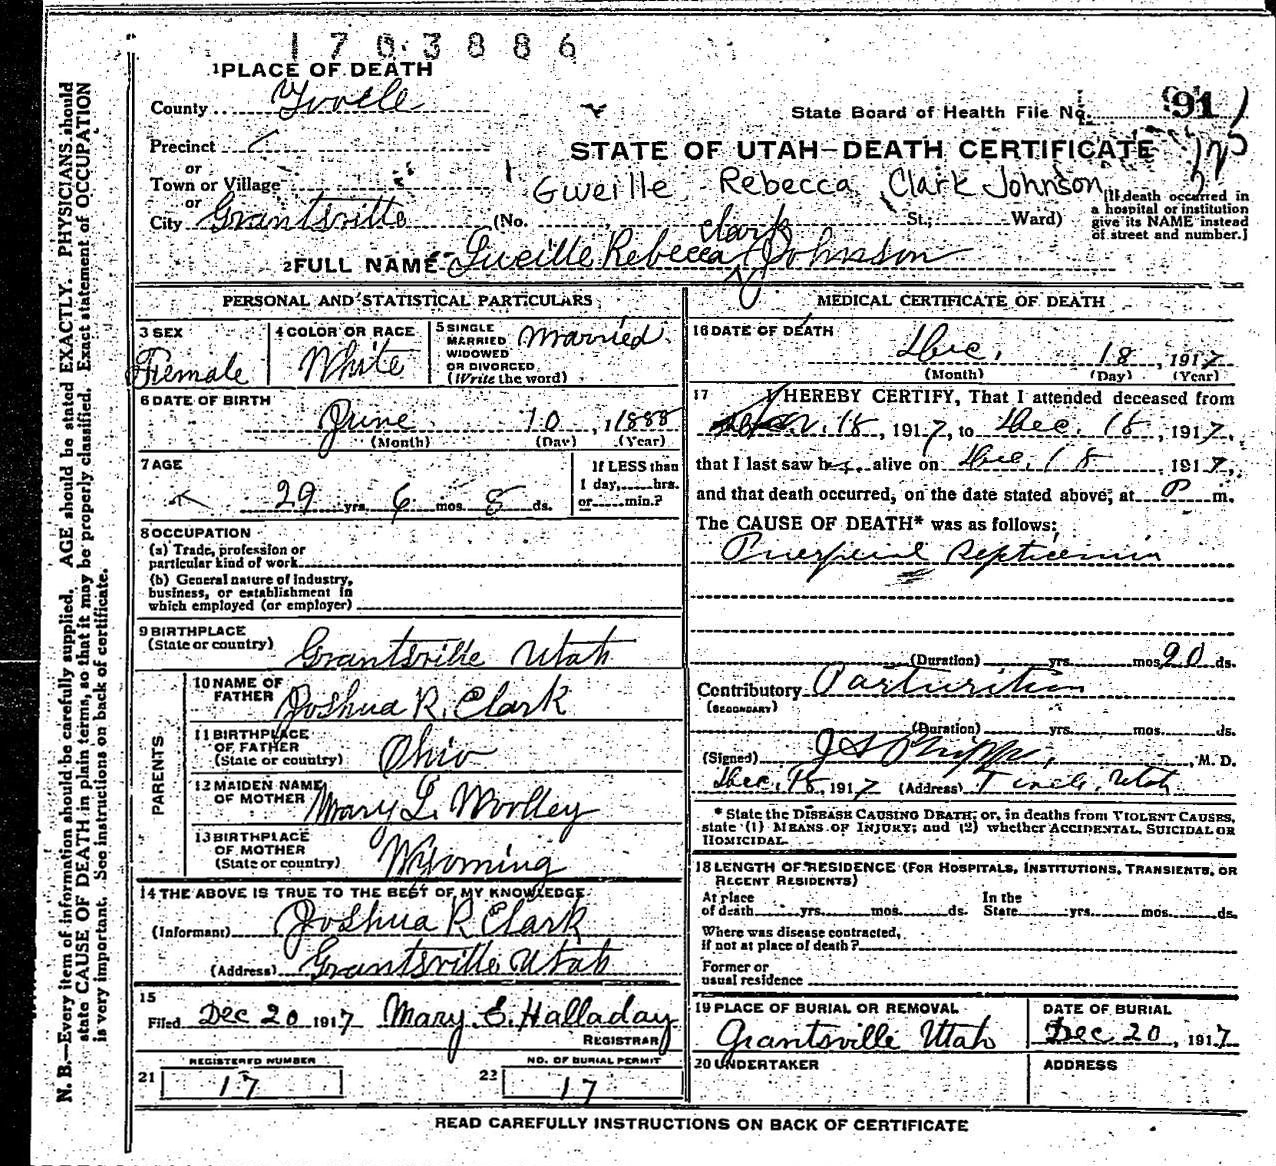 1703886
1 PLACE OF DEATH
County Tooele
State Board of Health File No. 91
Precinct
STATE OF UTAH—DEATH CERTIFICATE
or
Town or Village
Gweille Rebecca Clark Johnson
or
City Grantsville (No. St; Ward)
[If death occurred in
a hospital or institution
give its NAME instead
of street and number.]
Clark
2 FULL NAME Gweille Rebecca Johnson
PERSONAL AND STATISTICAL PARTICULARS
3 SEX
Female
4 COLOR OR RACE
White
5 SINGLE
MARRIED
WIDOWED
OR DIVORCED
(Write the word)
Married
6 DATE OF BIRTH
June 10, 1888
(Month) (Day) (Year)
7 AGE
29 yrs. 6 mos. 8 ds.
If LESS than
1 day, hrs.
or min.?
8 OCCUPATION
(a) Trade, profession or
particular kind of work
(b) General nature of industry,
business, or establishment in
which employed (or employer)
9 BIRTHPLACE
(State or country)
Grantsville Utah
PARENTS
10 NAME OF
FATHER
Joshua R. Clark
11 BIRTHPLACE
OF FATHER
(State or country)
Ohio
12 MAIDEN NAME
OF MOTHER
Mary L. Woolley
13 BIRTHPLACE
OF MOTHER
(State or country)
Wyoming
14 THE ABOVE IS TRUE TO THE BEST OF MY KNOWLEDGE
(Informant) Joshua R. Clark
(Address) Grantsville Utah
15
Filed Dec 20 1917 Mary E. Halladay
REGISTRAR
REGISTERED NUMBER
21 17
NO. OF BURIAL PERMIT
22 17
MEDICAL CERTIFICATE OF DEATH
16 DATE OF DEATH
Dec. 18, 1917
(Month) (Day) (Year)
17 I HEREBY CERTIFY, That I attended deceased from
18, 1917, to Dec. 18, 1917,
that I last saw h alive on Dec. 18, 1917,
and that death occurred, on the date stated above, at P m.
The CAUSE OF DEATH* was as follows:
Puerperal Septicemia
(Duration) yrs. mos. 20 ds.
Contributory Parturition
(SECONDARY)
(Duration) yrs. mos. ds.
(Signed) J S Phipps, M. D.
Dec. 18, 1917 (Address) Tooele, Utah
* State the DISEASE CAUSING DEATH; or, in deaths from VIOLENT CAUSES,
state (1) MEANS OF INJURY; and (2) whether ACCIDENTAL, SUICIDAL OR
HOMICIDAL.
18 LENGTH OF RESIDENCE (FOR HOSPITALS, INSTITUTIONS, TRANSIENTS, OR
RECENT RESIDENTS)
At place
of death yrs. mos. ds.
In the
State yrs. mos. ds.
Where was disease contracted,
if not at place of death?
Former or
usual residence
19 PLACE OF BURIAL OR REMOVAL
Grantsville Utah
DATE OF BURIAL
Dec. 20, 1917
20 UNDERTAKER
ADDRESS
READ CAREFULLY INSTRUCTIONS ON BACK OF CERTIFICATE
N. B.—Every item of information should be carefully supplied. AGE should be stated EXACTLY. PHYSICIANS should
state CAUSE OF DEATH in plain terms, so that it may be properly classified. Exact statement of OCCUPATION
is very important. See instructions on back of certificate.